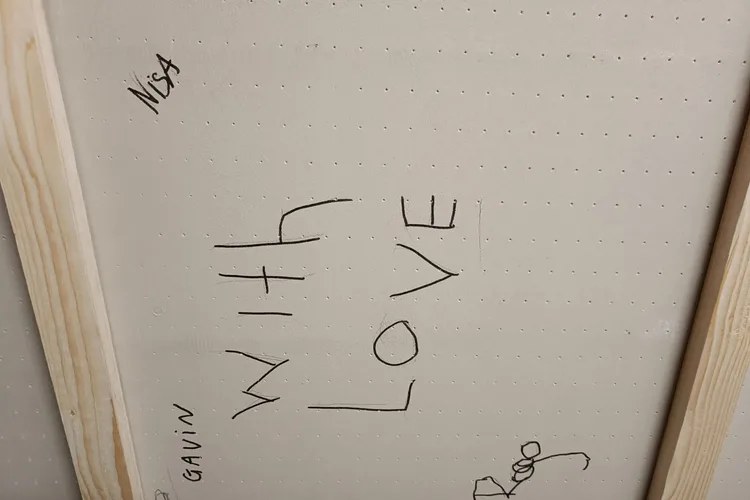 NISA
GAVIN
With
LOVE